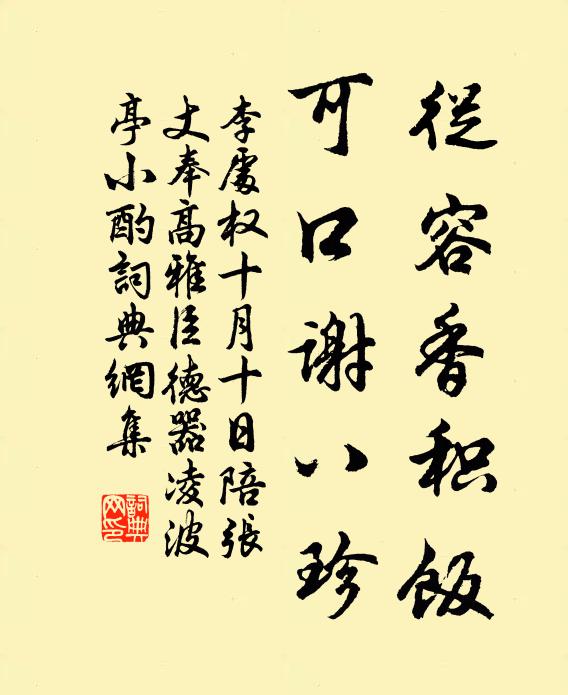 從容香积飯
可口谢八珍
李處权十月十日陪張
丈奉高雅臣德器凌波
亭小酌詞典網集
詞典
网印